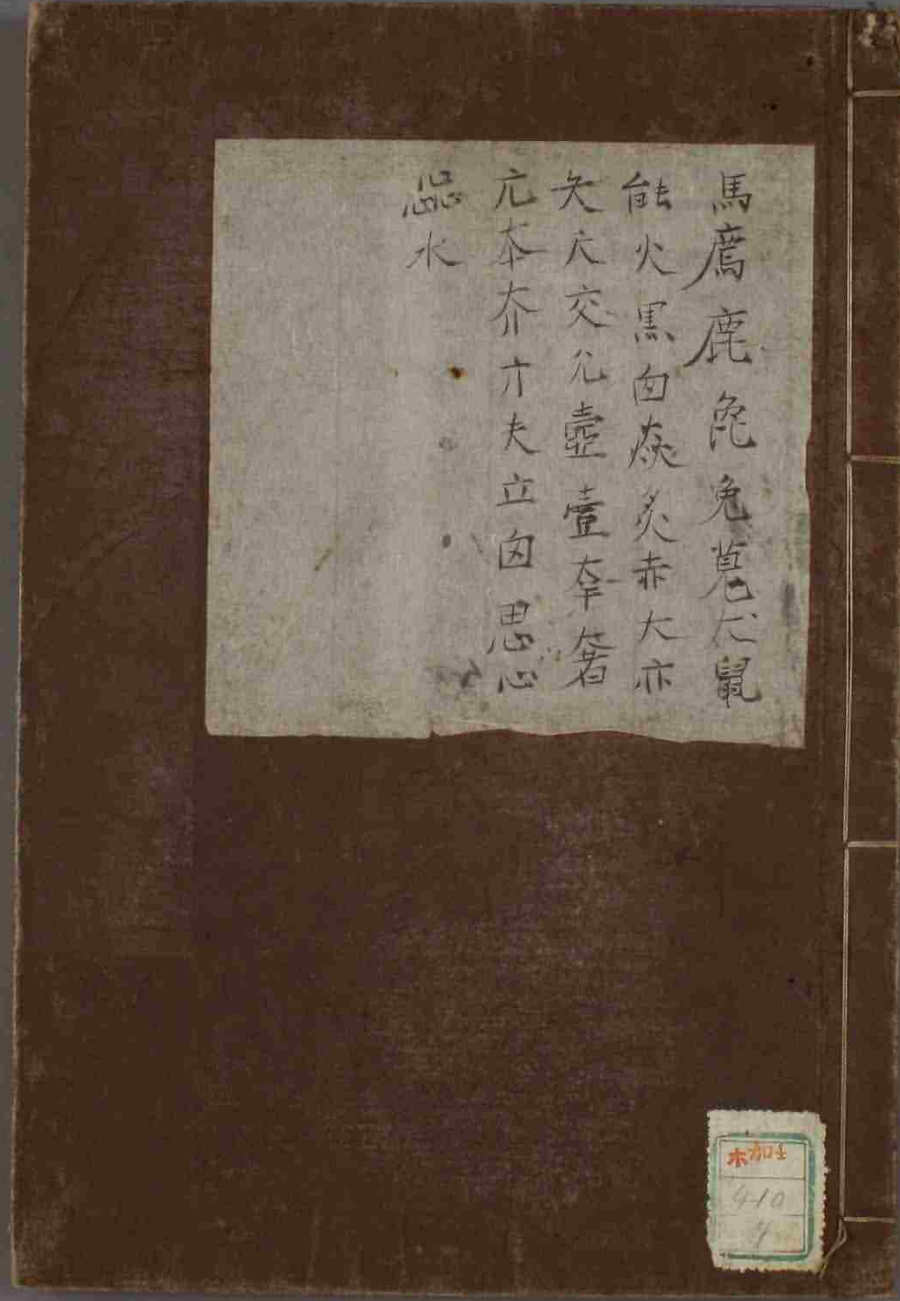 馬廌鹿㲋兔萈犬鼠
能火黑囱焱炙赤大亦
夨夭交尣壺壹㚔奢
亢夲夰亣夫立囟思心
惢水
410